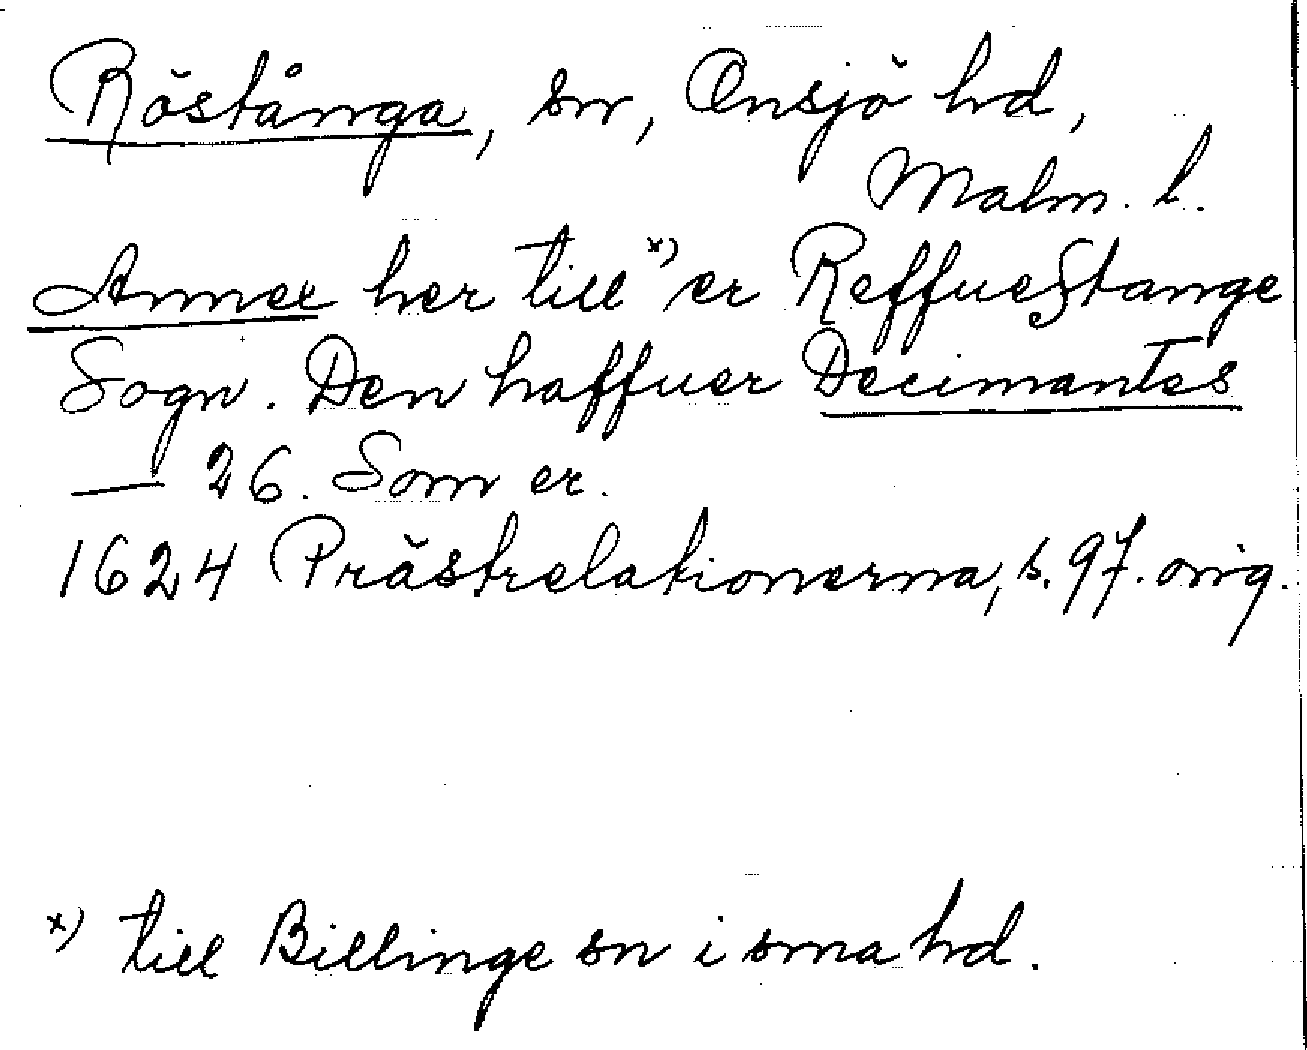 Röstånga, sn, Onsjö hd,
Malm. l.
Annex her till x) er ReffueStange
Sogn. Den haffuer Decimantes
— 26. Som er.
1624 Prästrelationerna, s. 97. orig.
x) till Billinge sn i sma hd.